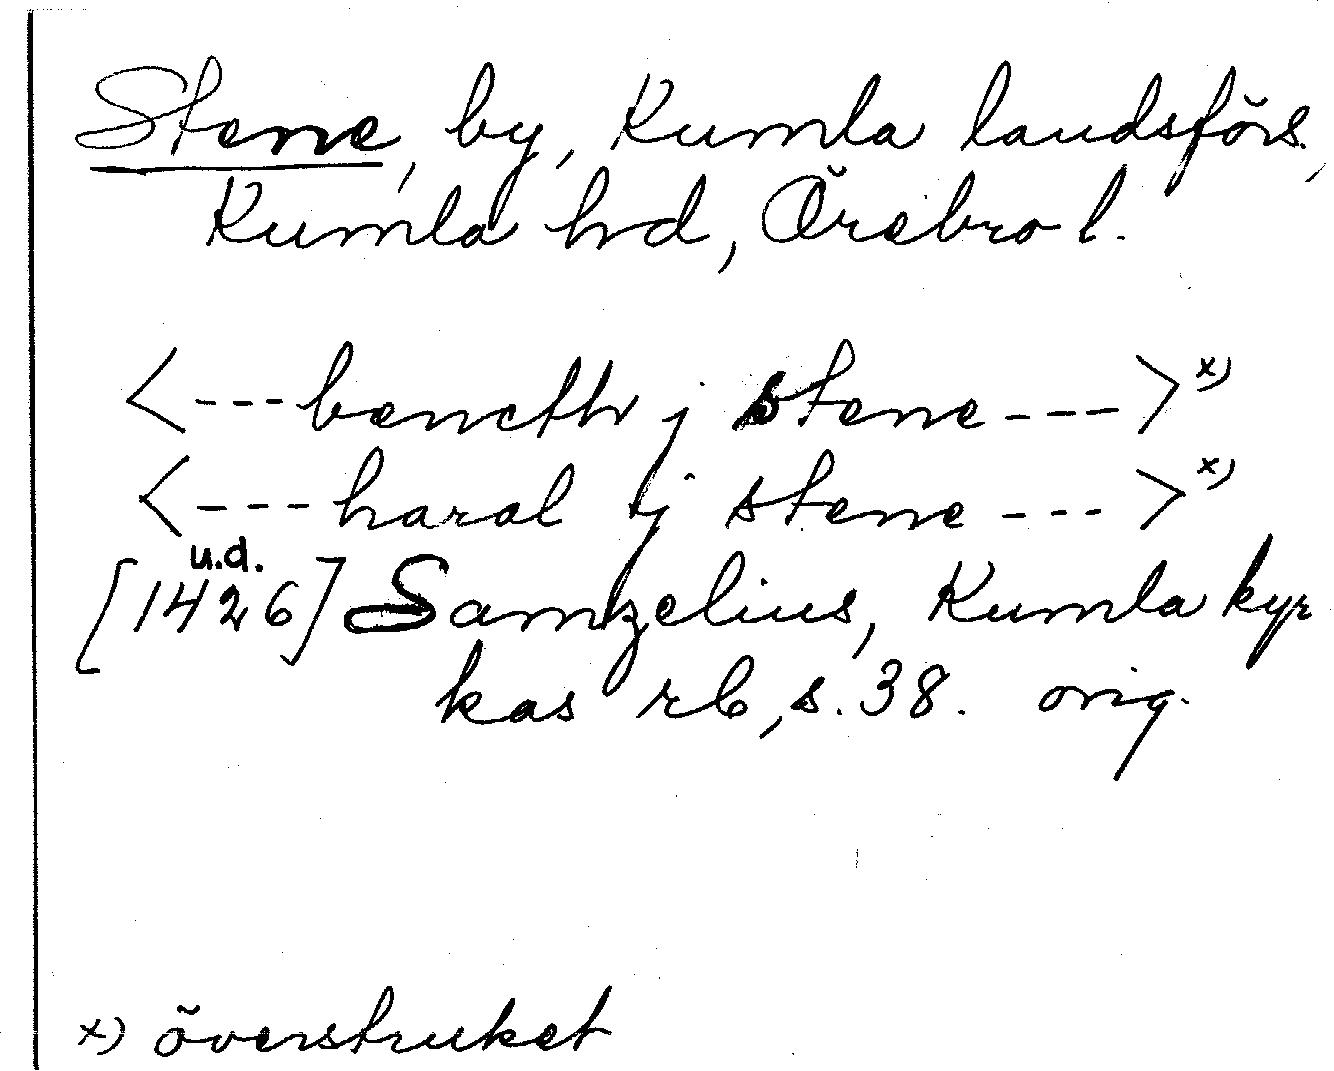 Stene, by, Kumla landsförs.,
Kumla hrd, Örebro l.
<---bencth j stene--->x)
<---haral ij stene--->x)
u.d.
[1426] Samzelius, Kumla kyr
kas rb, s. 38. orig.
x) överstruket